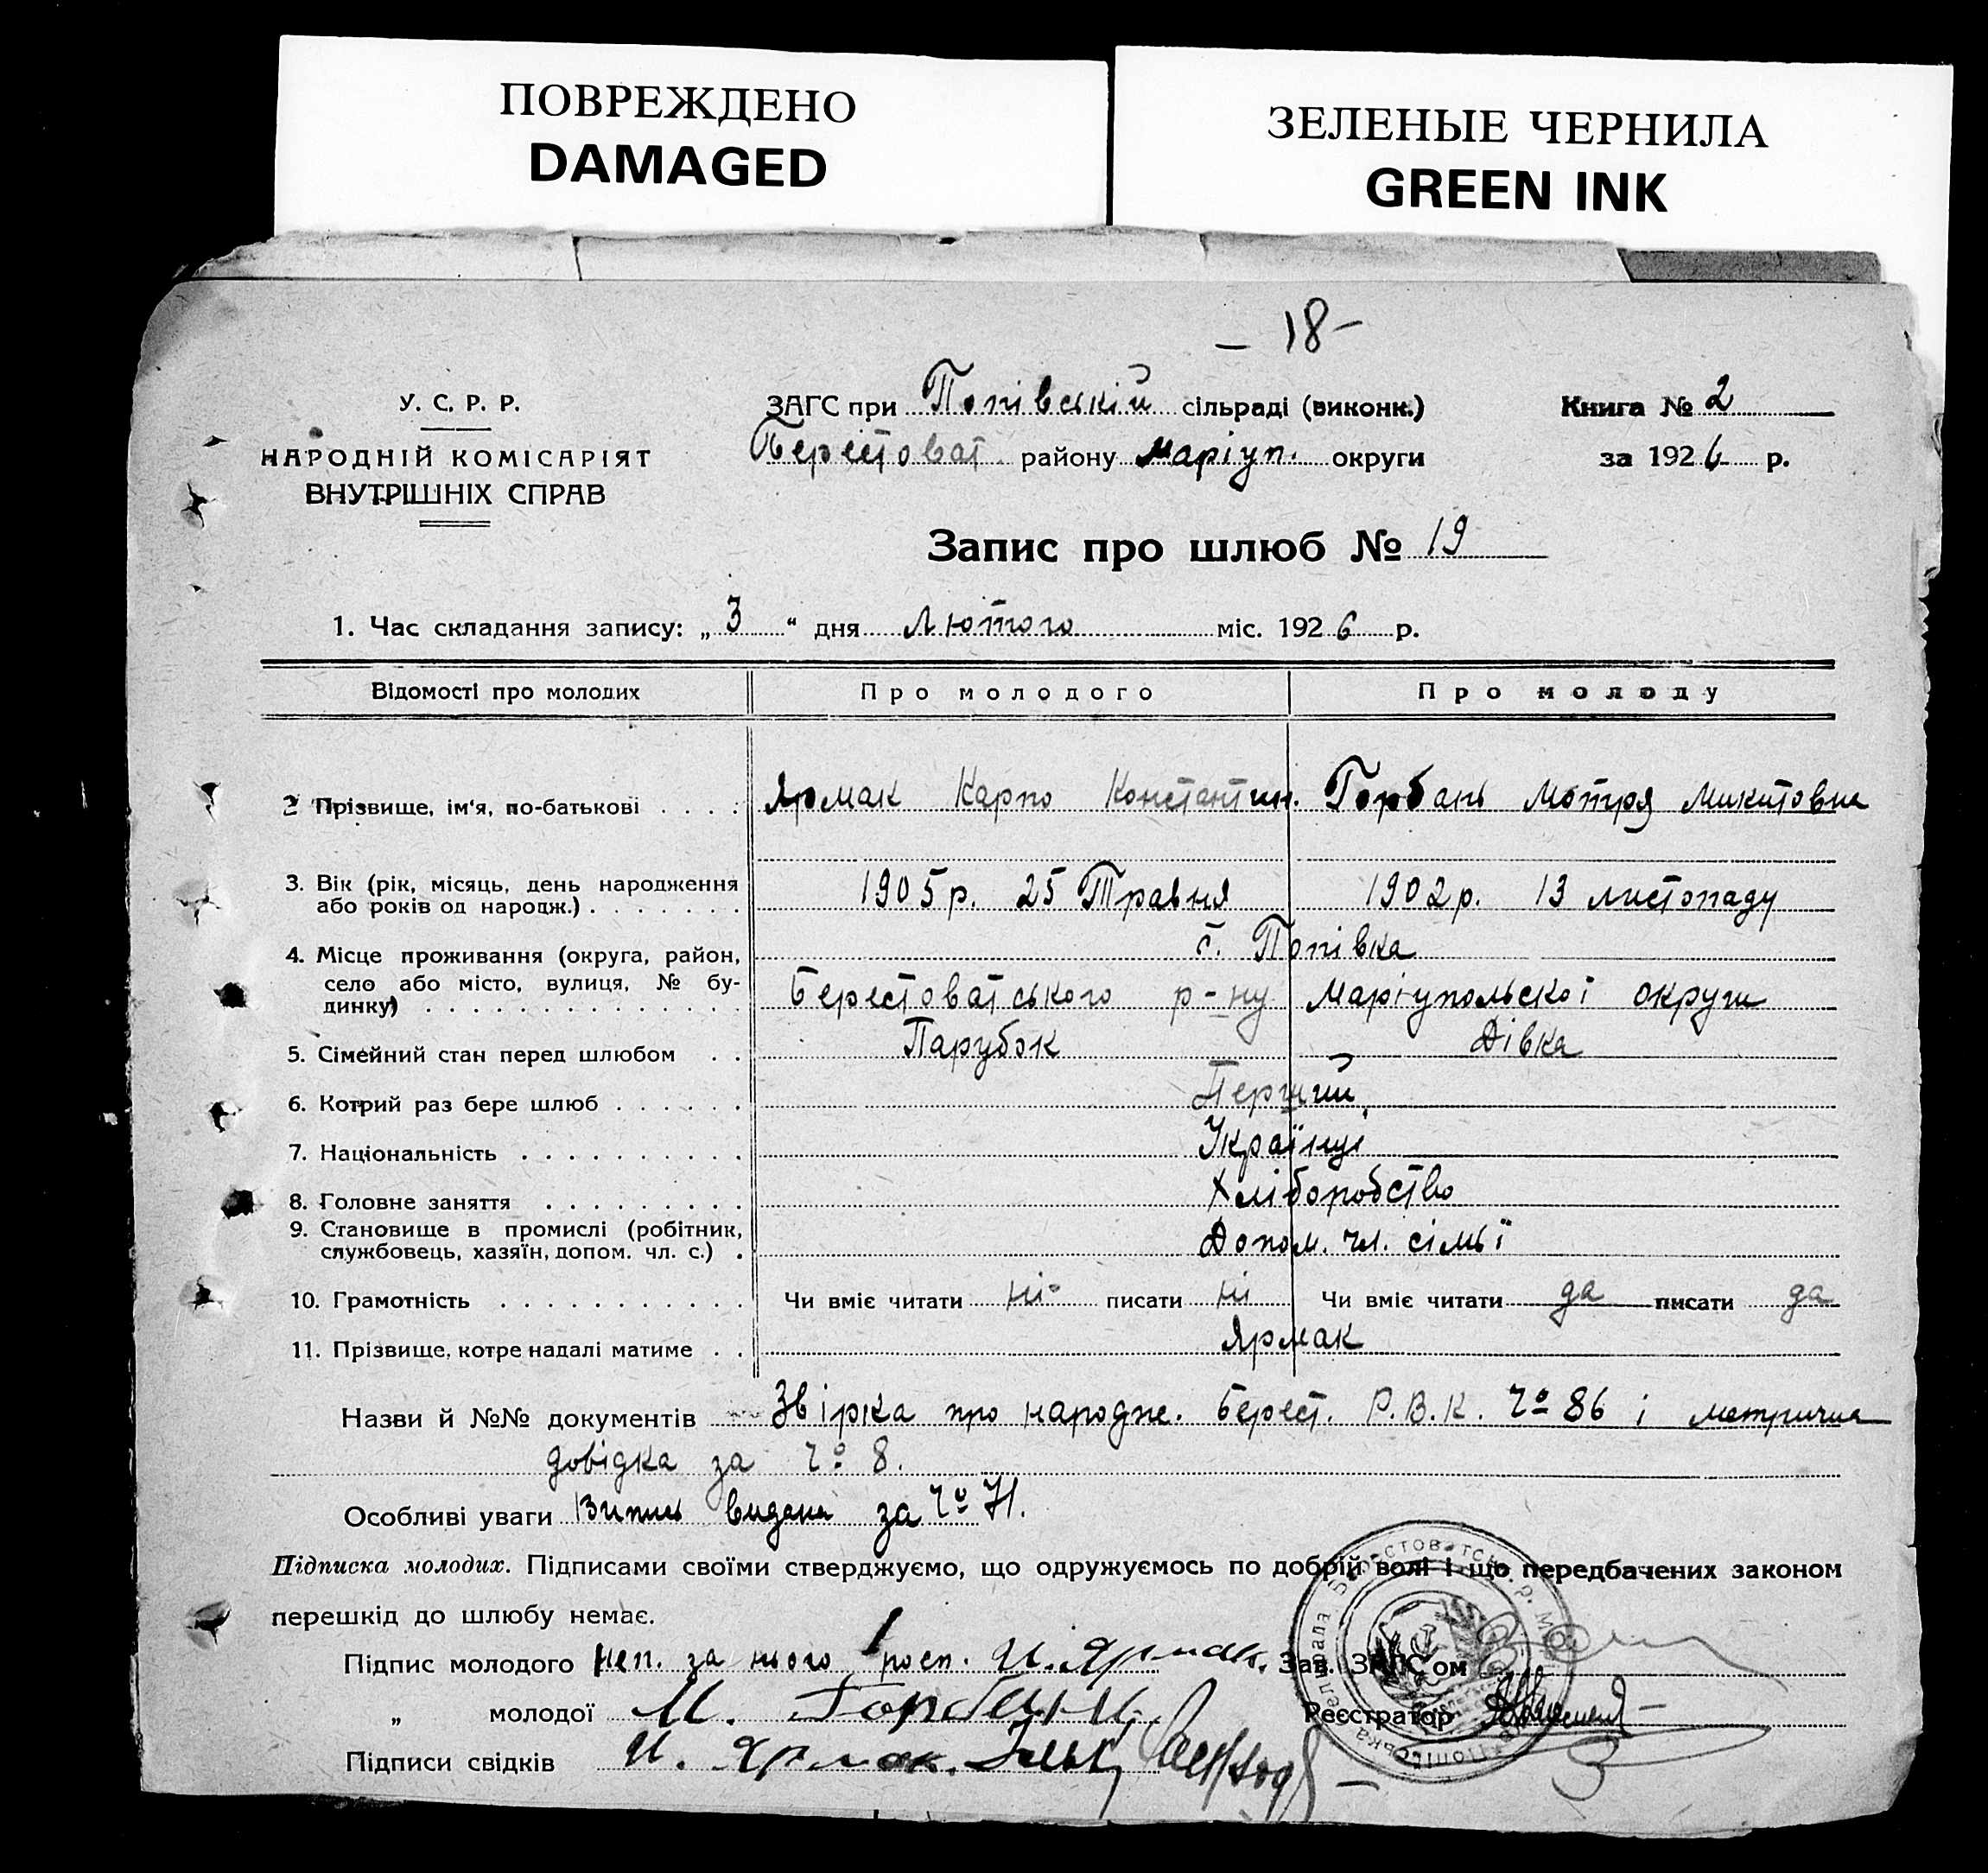 ПОВРЕЖДЕНО
DAMAGED
ЗЕЛЕНЫЕ ЧЕРНИЛА
GREEN INK
— 18 —
У. С. Р. Р.
НАРОДНІЙ КОМІСАРІЯТ
ВНУТРІШНІХ СПРАВ
ЗАГС при Попівській сільраді (виконк.)
Берестоват. району маріуп. округи
Книга № 2
за 1926 р.
Запис про шлюб № 19
1. Час складання запису: „3“ дня Лютого міс. 1926 р.
Відомості про молодих Про молодого Про молоду
2 Прізвище, ім‘я, по-батькові . . . . Ярмак Карпо Константин. Горбань Мотря Микитовна
3. Вік (рік, місяць, день народження
або років од народж.) . . . . . . . 1905 р. 25 Травня 1902 р. 13 листопаду
4. Місце проживання (округа, район, с. Попівка
село або місто, вулиця, № бу-
динку) . . . . . . . . . . . . . . Берестоватського р-ну Маріупольскоі округи
5. Сімейний стан перед шлюбом . . Парубок Дівка
6. Котрий раз бере шлюб . . . . . . Перший
7. Національність . . . . . . . . . . Українці
8. Головне заняття . . . . . . . . . Хліборобство
9. Становище в промислі (робітник,
службовець, хазяїн, допом. чл. с.) . Допом. чл. сімьї
10. Грамотність . . . . . . . . . . . Чи вміє читати ні писати ні Чи вміє читати да писати да
11. Прізвище, котре надалі матиме . . Ярмак
Назви й №№ документів Звірка про народже. Берест. Р.В.К. Чо 86 і метрична
довідка за Чо 8.
Особливі уваги Випись видана за Чо 71.
Підписка молодих. Підписами своїми стверджуємо, що одружуємось по добрій волі і що передбачених законом
перешкід до шлюбу немає.
Підпис молодого неп. за нього росп. И. Ярмак. Зав. ЗАГС'ом
„ молодої М. Горбань Реєстратор
Підписи свідків И. Ярмак.